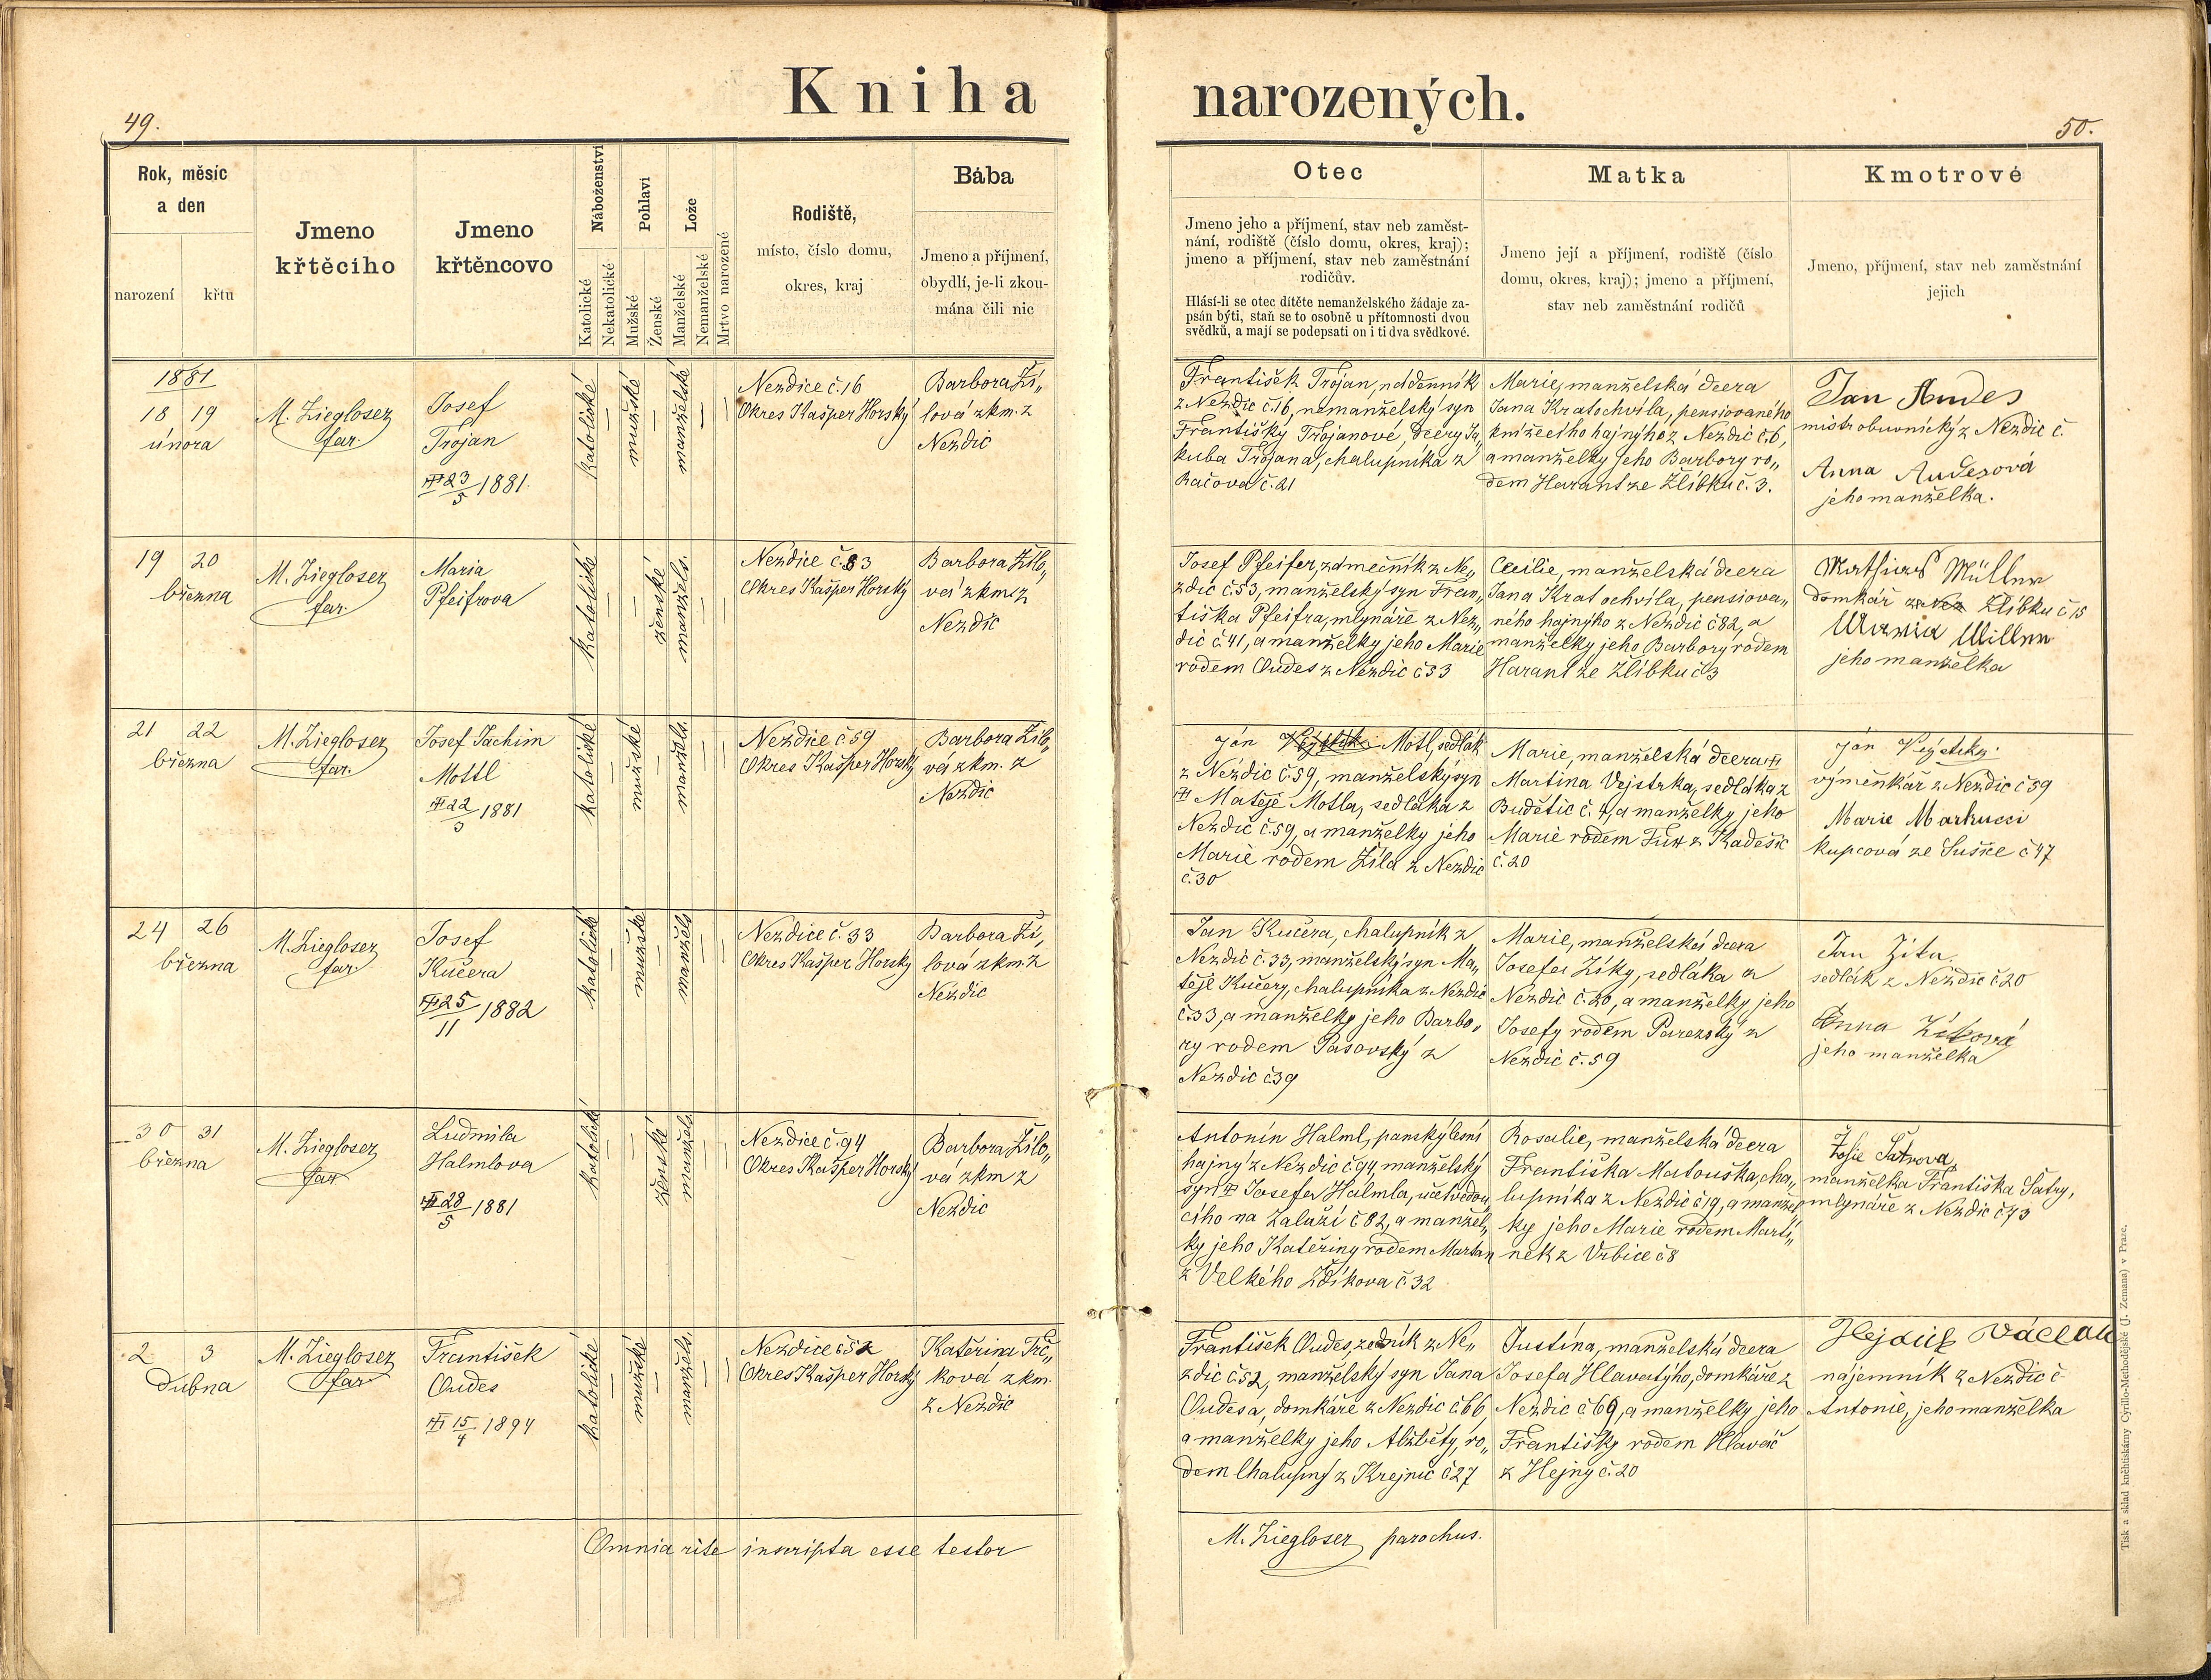 49.
Kniha
narozených.
50.
Rok, měsíc
a den
narození
křtu
Jmeno
křtěcího
Jmeno
křtěncovo
Náboženství
Katolické
Nekatolické
Pohlaví
Mužské
Ženské
Lože
Manželské
Nemanželské
Mrtvo narozené
Rodiště,
místo, číslo domu,
okres, kraj
Bába
Jmeno a příjmení,
obydlí, je-li zkou-
mána čili nic
Otec
Jmeno jeho a příjmení, stav neb zaměst-
nání, rodiště (číslo domu, okres, kraj);
jmeno a příjmení, stav neb zaměstnání
rodičův.
Hlásí-li se otec dítěte nemanželského žádaje za-
psán býti, staň se to osobně u přítomnosti dvou
svědků, a mají se podepsati on i ti dva svědkové.
Matka
Jmeno její a příjmení, rodiště (číslo
domu, okres, kraj); jmeno a příjmení,
stav neb zaměstnání rodičů
Kmotrové
Jmeno, příjmení, stav neb zaměstnání
jejich
1881
18 19
února
M. Ziegloser
far.
Josef
Trojan
23/5 1881.
katolické
mužské
manželské
Nezdice č. 16
Okres Kašper Horský
Barbora Ží„
lová zkm. z
Nezdic
František Trojan, nádenník
z Nezdic č. 16, nemanželský syn
Františky Trojanové, dcery Ja„
kuba Trojana, chalupníka z
Račova č. 21
Marie, manželská dcera
Jana Kratochvíla, pensiovaného
knížecího hajného z Nezdic č. 6,
a manželky jeho Barbory ro„
dem Harant ze Žlíbku č. 3.
Jan Audes
mistr obuvnický z Nezdic č.
Anna Audesová
jeho manželka.
19 20
března
M. Ziegloser
far.
Maria
Pfeifrova
katolické
ženské
manžels.
Nezdice č. 83
Okres Kašper Horský
Barbora Žílo„
vá zkm. z
Nezdic
Josef Pfeifer, zámečník z Ne„
zdic č. 53, manželský syn Fran„
tiška Pfeifra, mlynáře z Nez„
dic č. 41, a manželky jeho Marie
rodem Oudes z Nezdic č 33
Cecilie, manželská dcera
Jana Kratochvíla, pensiova„
ného hajného z Nezdic č 82, a
manželky jeho Barbory rodem
Harant ze Žlíbku č 3
Mathias Müller
domkář Žlíbku č 15
Maria Miller
jeho manželka
21 22
března
M. Ziegloser
far.
Josef Jachim
Mottl
22/3 1881
katolické
mužské
manžels.
Nezdice č 59
Okres Kašper Horský
Barbora Žílo„
vá zkm. z
Nezdic
Ján Motl, sedlák
z Nezdic č 59, manželský syn
Matěje Motla, sedláka z
Nezdic č. 59, a manželky jeho
Marie rodem Žíla z Nezdic
č. 30
Marie, manželská dcera
Martina Vejstrka, sedláka z
Budětic č. 4, a manželky jeho
Marie rodem z Kadešic
č. 20
Ján
výměnkář z Nezdic č 59
Marie Markucci
kupcová ze Sušice č 47
24 26
března
M. Ziegloser
far.
Josef
Kučera
25/11 1882
katolické
mužské
manžels
Nezdice č. 33
Okres Kašper Horský
Barbora Ží„
lová zkm. z
Nezdic
Jan Kučera, chalupník z
Nezdic č. 33, manželský syn Ma„
těje Kučery, chalupníka z Nezdic
č. 33, a manželky jeho Barbo„
ry rodem Pasovský z
Nezdic č 39
Marie, manželská dcera
Josefa Zíky, sedláka z
Nezdic č. 20, a manželky jeho
Josefy rodem Parezský z
Nezdic č. 59
Jan Zíka
sedlák z Nezdic č 20
Anna Zíková
jeho manželka
30 31
března
M. Ziegloser
far
Ludmila
Halmlova
28/5 1881
katolické
ženské
manžels
Nezdice č. 94
Okres Kašper Horský
Barbora Žílo„
vá zkm z
Nezdic
Antonín Halml, panský lesní
hajný z Nezdic č 94, manželský
syn Josefa Halmla, účetvedou
cího na Zaluží č 82, a manžel„
ky jeho Kateřiny rodem Martan
z Velkého Zdíkova č. 32
Rosalie, manželská dcera
Františka Matouška, cha„
lupníka z Nezdic č 19, a manžel
ky jeho Marie rodem Martí„
nek z Vrbice č 8
Žofie Šatrova,
manželka Františka Šatry,
mlynáře z Nezdic č 73
2 3
dubna
M. Ziegloser
far
František
Oudes
15/4 1894
katolické
mužské
manžels.
Nezdice č 52
Okres Kašper Horský
Kateřina Trč„
ková zkm.
z Nezdic
František Oudes, zedník z Ne„
zdic č 52, manželský syn Jana
Oudesa, domkáře z Nezdic č. 66,
a manželky jeho Alžběty, ro„
dem Chalupný z Krejnic č 27
Justina, manželská dcera
Josefa Hlavatýho, domkáře z
Nezdic č 69, a manželky jeho
Františky rodem Hlaváč
z Hejný č. 20
Václav
nájemník z Nezdic č
Antonie, jeho manželka
Omnia rite inscripta esse testor
M. Ziegloser parochus.
Tisk a sklad knihtiskárny Cyrillo-Methodějské (J. Zeman) v Praze.